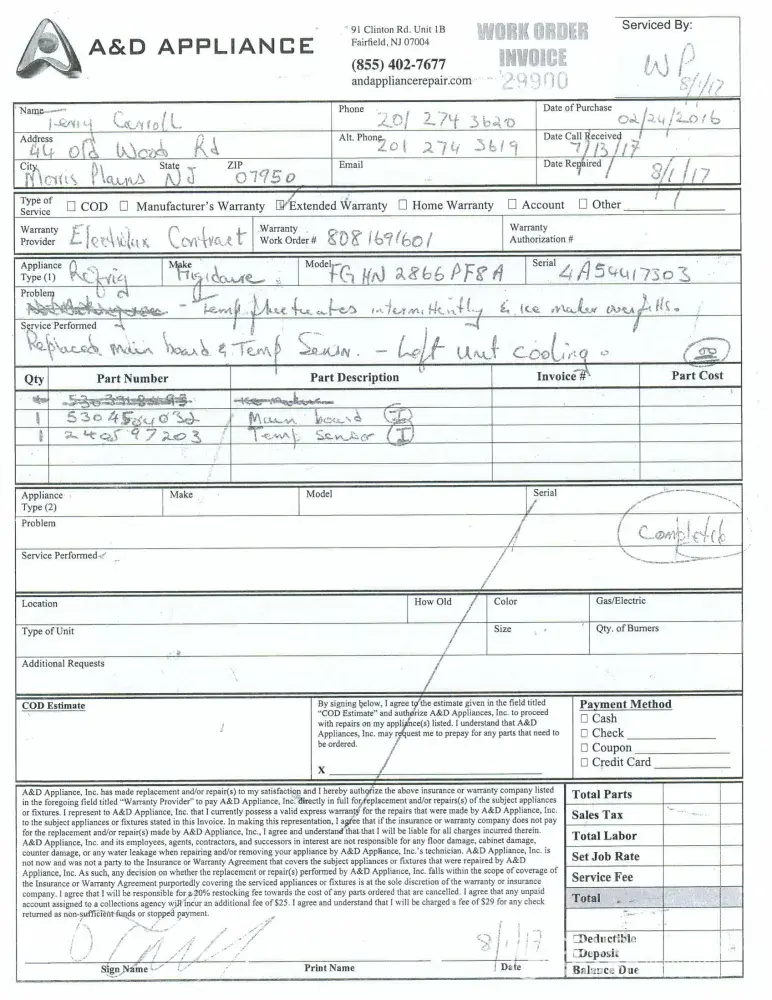 A&D APPLIANCE
91 Clinton Rd. Unit 1B
Fairfield, NJ 07004
(855) 402-7677
andappliancerepair.com
WORK ORDER
INVOICE
29900
Serviced By:
WP
8/1/17
Name Terry Carroll
Phone 201 274 3620
Date of Purchase 02/24/2016
Address 44 Old Wood Rd
Alt. Phone 201 274 3619
Date Call Received 7/13/17
City Morris Plains State NJ ZIP 07950
Email
Date Repaired 8/1/17
Type of Service
☐ COD ☐ Manufacturer's Warranty ☑ Extended Warranty ☐ Home Warranty ☐ Account ☐ Other
Warranty Provider Electrolux Contract
Warranty Work Order # 8081691601
Warranty Authorization #
Appliance Type (1) Refrig
Make Frigidaire
Model FGHN2866PF8A
Serial 4A54417303
Problem - Temp fluctuates intermittently & ice maker overfills.
Service Performed
Replaced main board & Temp Sensor. - Left unit cooling.
Qty Part Number Part Description Invoice # Part Cost
1 Main board (I)
1 240597203 Temp Sensor (I)
Appliance Type (2) Make Model Serial
Problem
Completed
Service Performed
Location How Old Color Gas/Electric
Type of Unit Size Qty. of Burners
Additional Requests
COD Estimate
By signing below, I agree to the estimate given in the field titled
"COD Estimate" and authorize A&D Appliances, Inc. to proceed
with repairs on my appliance(s) listed. I understand that A&D
Appliances, Inc. may request me to prepay for any parts that need to
be ordered.
X
Payment Method
☐ Cash
☐ Check
☐ Coupon
☐ Credit Card
A&D Appliance, Inc. has made replacement and/or repair(s) to my satisfaction and I hereby authorize the above insurance or warranty company listed
in the foregoing field titled "Warranty Provider" to pay A&D Appliance, Inc. directly in full for replacement and/or repairs(s) of the subject appliances
or fixtures. I represent to A&D Appliance, Inc. that I currently possess a valid express warranty for the repairs that were made by A&D Appliance, Inc.
to the subject appliances or fixtures stated in this Invoice. In making this representation, I agree that if the insurance or warranty company does not pay
for the replacement and/or repair(s) made by A&D Appliance, Inc., I agree and understand that that I will be liable for all charges incurred therein.
A&D Appliance, Inc. and its employees, agents, contractors, and successors in interest are not responsible for any floor damage, cabinet damage,
counter damage, or any water leakage when repairing and/or removing your appliance by A&D Appliance, Inc.'s technician. A&D Appliance, Inc. is
not now and was not a party to the Insurance or Warranty Agreement that covers the subject appliances or fixtures that were repaired by A&D
Appliance, Inc. As such, any decision on whether the replacement or repair(s) performed by A&D Appliance, Inc. falls within the scope of coverage of
the Insurance or Warranty Agreement purportedly covering the serviced appliances or fixtures is at the sole discretion of the warranty or insurance
company. I agree that I will be responsible for a 20% restocking fee towards the cost of any parts ordered that are cancelled. I agree that any unpaid
account assigned to a collections agency will incur an additional fee of $25. I agree and understand that I will be charged a fee of $29 for any check
returned as non-sufficient funds or stopped payment.
Total Parts
Sales Tax
Total Labor
Set Job Rate
Service Fee
Total
☐ Deductible
☐ Deposit
Balance Due
8/1/17
Sign Name Print Name Date